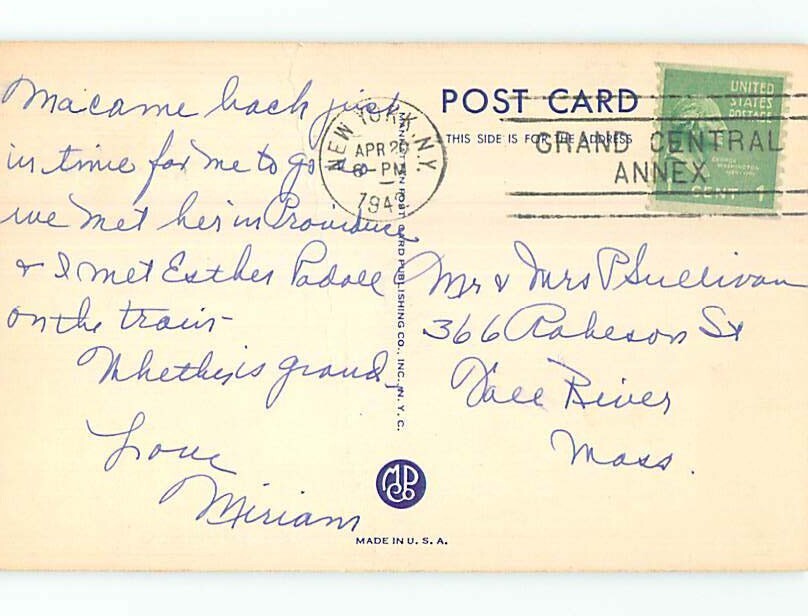 Ma came back just
in time for me to go
we met her in Providence
& I met Esther Padoll
on the train -
Whether is grand,
Love
Miriam
POST CARD
THIS SIDE IS FOR THE ADDRESS
NEW YORK, N.Y.
APR 20
6 - PM
194
GRAND CENTRAL
ANNEX
UNITED
STATES
POSTAGE
GEORGE
WASHINGTON
1 CENT 1
Mr & Mrs P Sullivan
366 Robeson St
Fall River
Mass.
MANHATTAN POST CARD PUBLISHING CO., INC. N. Y. C.
MPCo
MADE IN U. S. A.